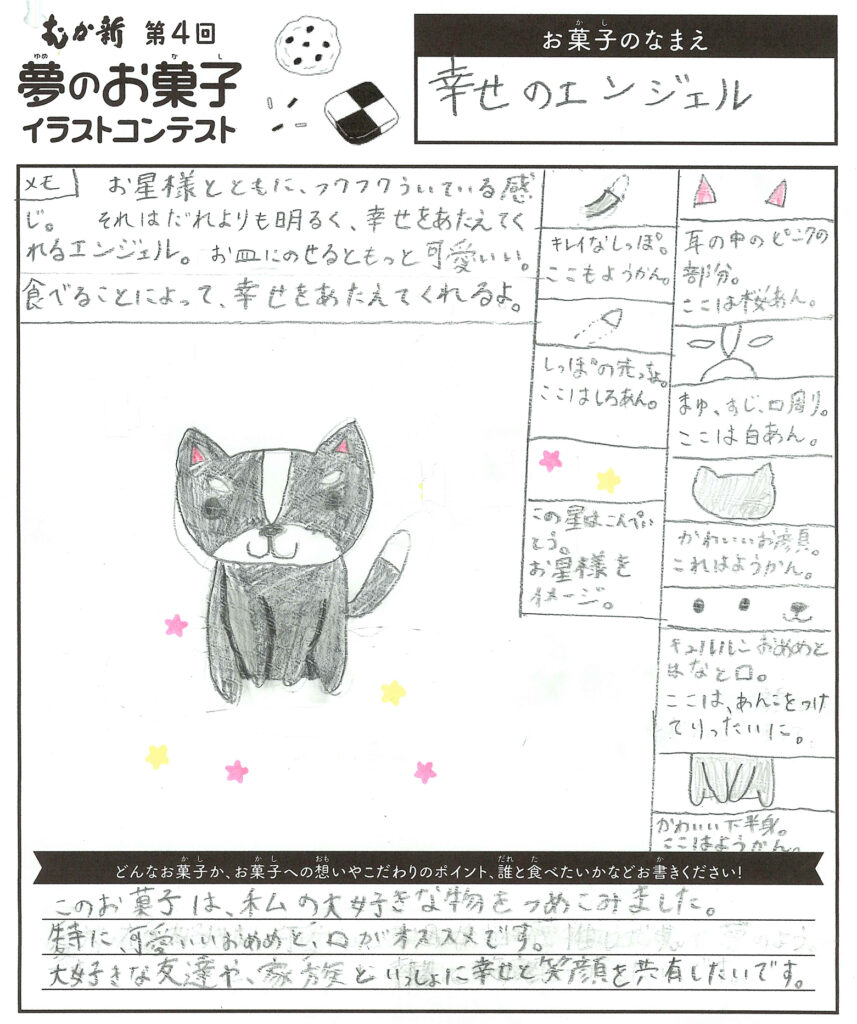 むか新 第4回
夢のお菓子
ゆめ かし
イラストコンテスト
お菓子のなまえ
かし
幸せのエンジェル
メモ お星様とともに、フワフワういている感
じ。 それはだれよりも明るく、幸せをあたえてく
れるエンジェル。 お皿にのせるともっと可愛いい。
食べることによって、幸せをあたえてくれるよ。
キレイなしっぽ。
ここもようかん。
しっぽの先っちょ。
ここはしろあん。
この星はこんぺい
とう。
お星様を
イメージ。
耳の中のピンクの
部分。
ここは桜あん。
まゆ、すじ、口周り。
ここは白あん。
かわいいお顔。
これはようかん。
キュルルンおめめと
はなと口。
ここは、あんこをつけ
てりったいに。
かわいい下半身。
ここはようかん。
どんなお菓子か、お菓子への想いやこだわりのポイント、誰と食べたいかなどお書きください!
かし かし おも だれ た か
このお菓子は、私の大好きな物をつめこみました。
特に、可愛いいおめめと、口がオススメです。
大好きな友達や、家族といっしょに幸せと笑顔を共有したいです。